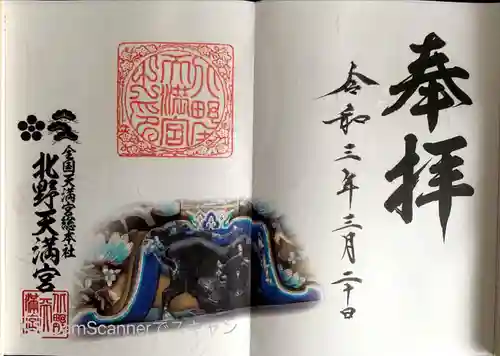 奉拝
令和三年三月二十日
北野天満宮
全国天満宮総本社
北野天満宮
北野天満宮
CamScannerでスキャン